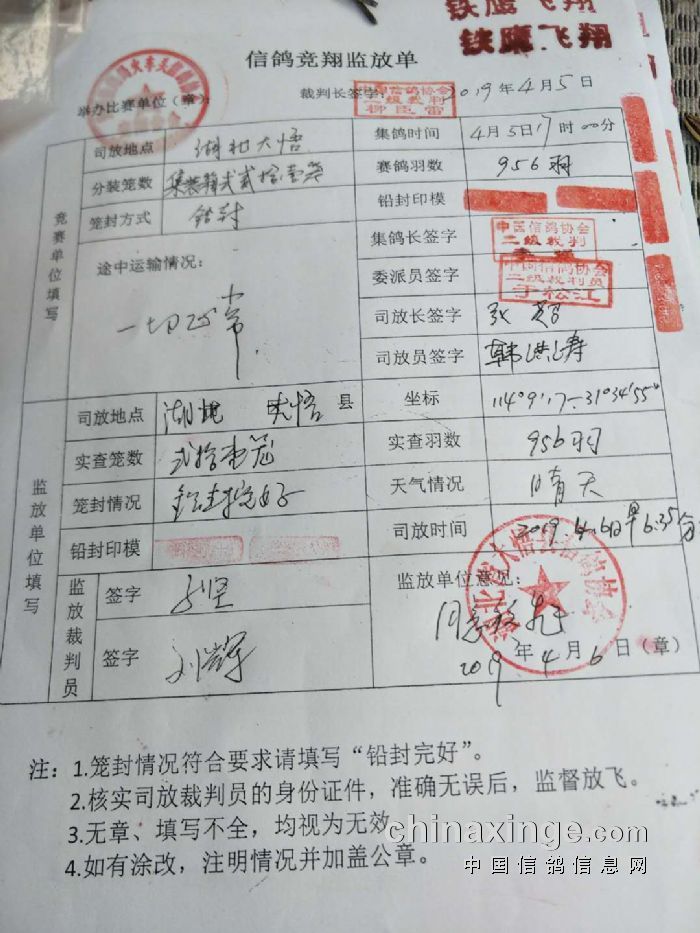 铁鹰飞翔
铁鹰飞翔
信鸽竞翔监放单
举办比赛单位(章): 裁判长签字: 中国信鸽协会 二级裁判 柳臣雷 2019年4月5日
竞赛单位填写
司放地点 湖北大悟 集鸽时间 4月5日17时00分
分装笼数 集装箱式贰拾壹笼 赛鸽羽数 956羽
笼封方式 铅封 铅封印模
途中运输情况: 一切正常
集鸽长签字 中国信鸽协会 二级裁判
委派员签字 中国信鸽协会 二级裁判员 于松江
司放长签字
司放员签字 韩洪涛
监放单位填写
司放地点 湖北 大悟 县 坐标 114°9′17-31°34′55″
实查笼数 贰拾壹笼 实查羽数 956羽
笼封情况 铅封完好 天气情况 晴天
铅封印模 司放时间 2019 4.6日早6:35分
监放裁判员
签字
签字 刘辉
监放单位意见:
同意放飞
2019年4月6日(章)
注: 1.笼封情况符合要求请填写“铅封完好”。
2.核实司放裁判员的身份证件，准确无误后，监督放飞。
3.无章、填写不全，均视为无效
4.如有涂改，注明情况并加盖公章。
chinaxinge.com
中国信鸽信息网